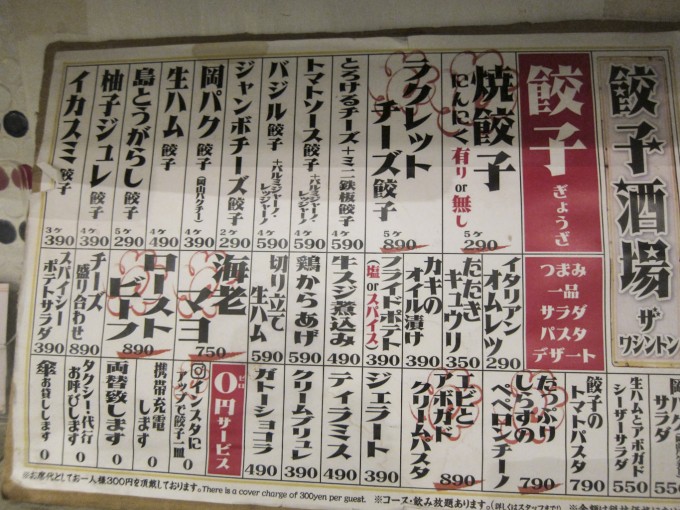 餃子酒場
ザ
ワシントン
餃子
ぎょうざ
焼餃子
にんにく有り or 無し
5ケ
290
ラクレット
チーズ餃子
5ケ
890
とろけるチーズ+ミニ鉄板餃子
4ケ
590
トマトソース餃子
+パルミジャーノ・レッジャーノ
4ケ
590
バジル餃子
+パルミジャーノ・レッジャーノ
4ケ
590
ジャンボチーズ餃子
2ケ
290
岡パク餃子
(岡山パクチー)
4ケ
390
生ハム餃子
4ケ
490
島とうがらし餃子
5ケ
290
柚子ジュレ餃子
4ケ
390
イカスミ餃子
3ケ
390
つまみ
一品
サラダ
パスタ
デザート
イタリアン
オムレツ
290
たたき
キュウリ
350
カキの
オイル漬け
390
フライドポテト
(塩 or スパイス)
390
牛スジ煮込み
490
鶏からあげ
590
切り立て
生ハム
590
海老
マヨ
750
ロースト
ビーフ
890
チーズ
盛り合わせ
890
スパイシー
ポテトサラダ
390
サラダ
550
生ハムとアボガド
シーザーサラダ
550
餃子の
トマトパスタ
790
たっぷり
しらすの
ペペロンチーノ
790
エビと
アボガド
クリームパスタ
890
ジェラート
390
ティラミス
490
クリームブリュレ
390
ガトーショコラ
490
0円サービス
ゼロ
インスタに
アップで餃子一皿
0
携帯充電
します
0
両替致します
0
タクシー・代行
お呼びします
0
傘お貸しします
0
※お席代としてお一人様300円を頂戴しております。There is a cover charge of 300yen per guest.
※コース・飲み放題あります。(詳しくはスタッフまで)